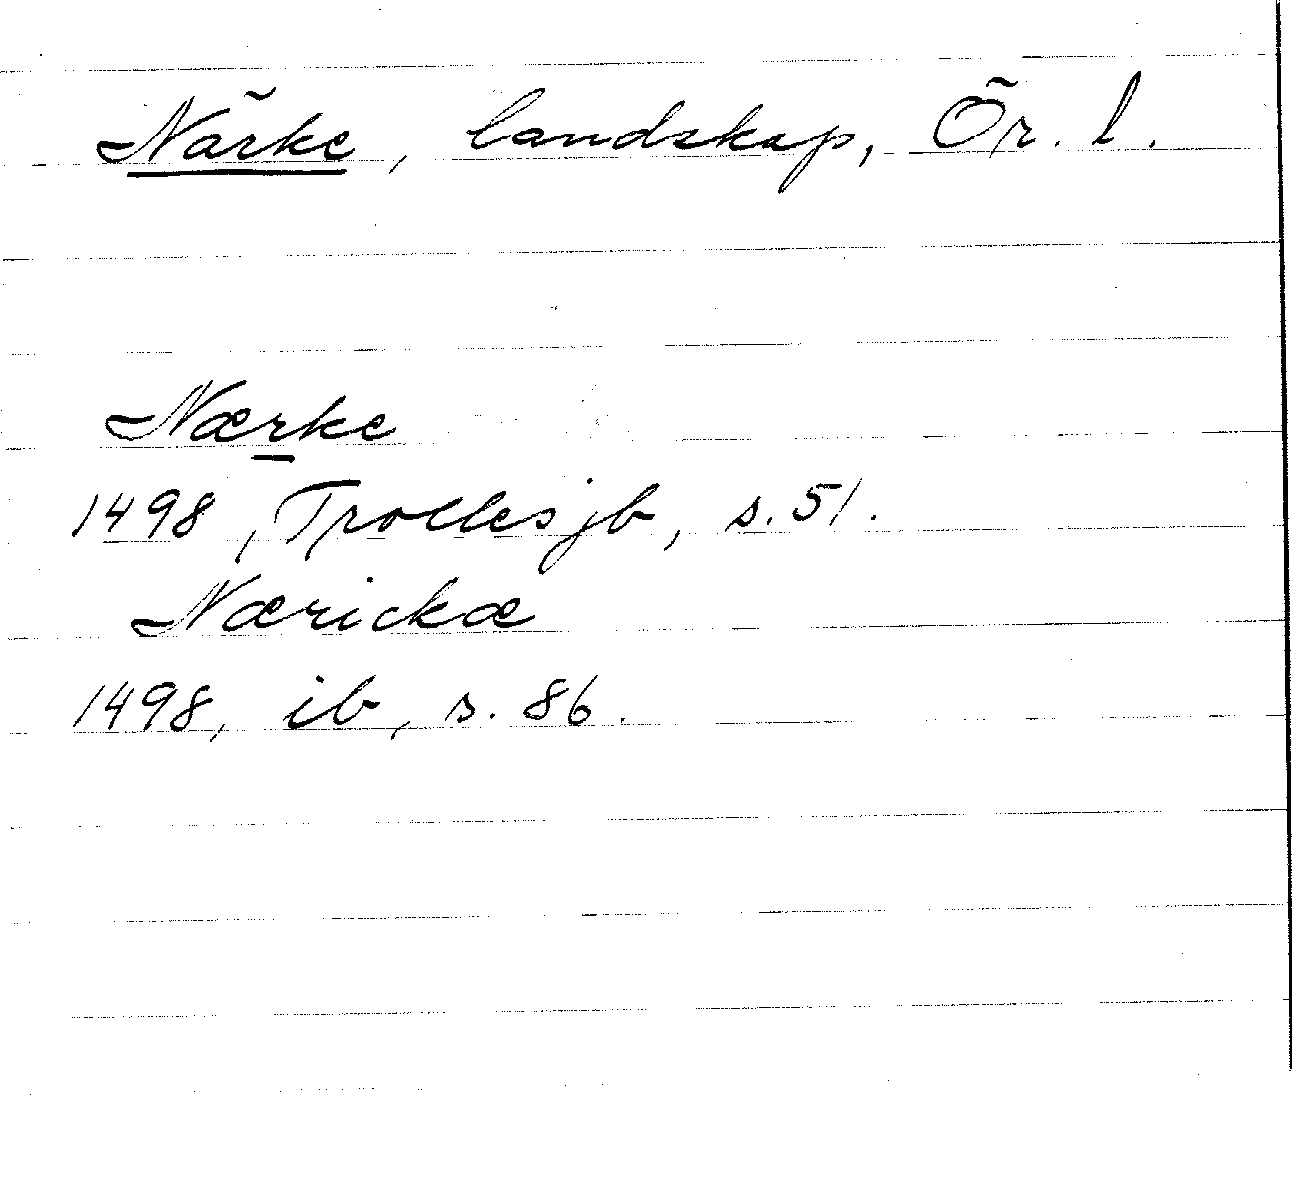 Närke, landskap, Ör. l.
Nærke
1498, Trollesjb, s. 51.
Nærickæ
1498, ib, s. 86.